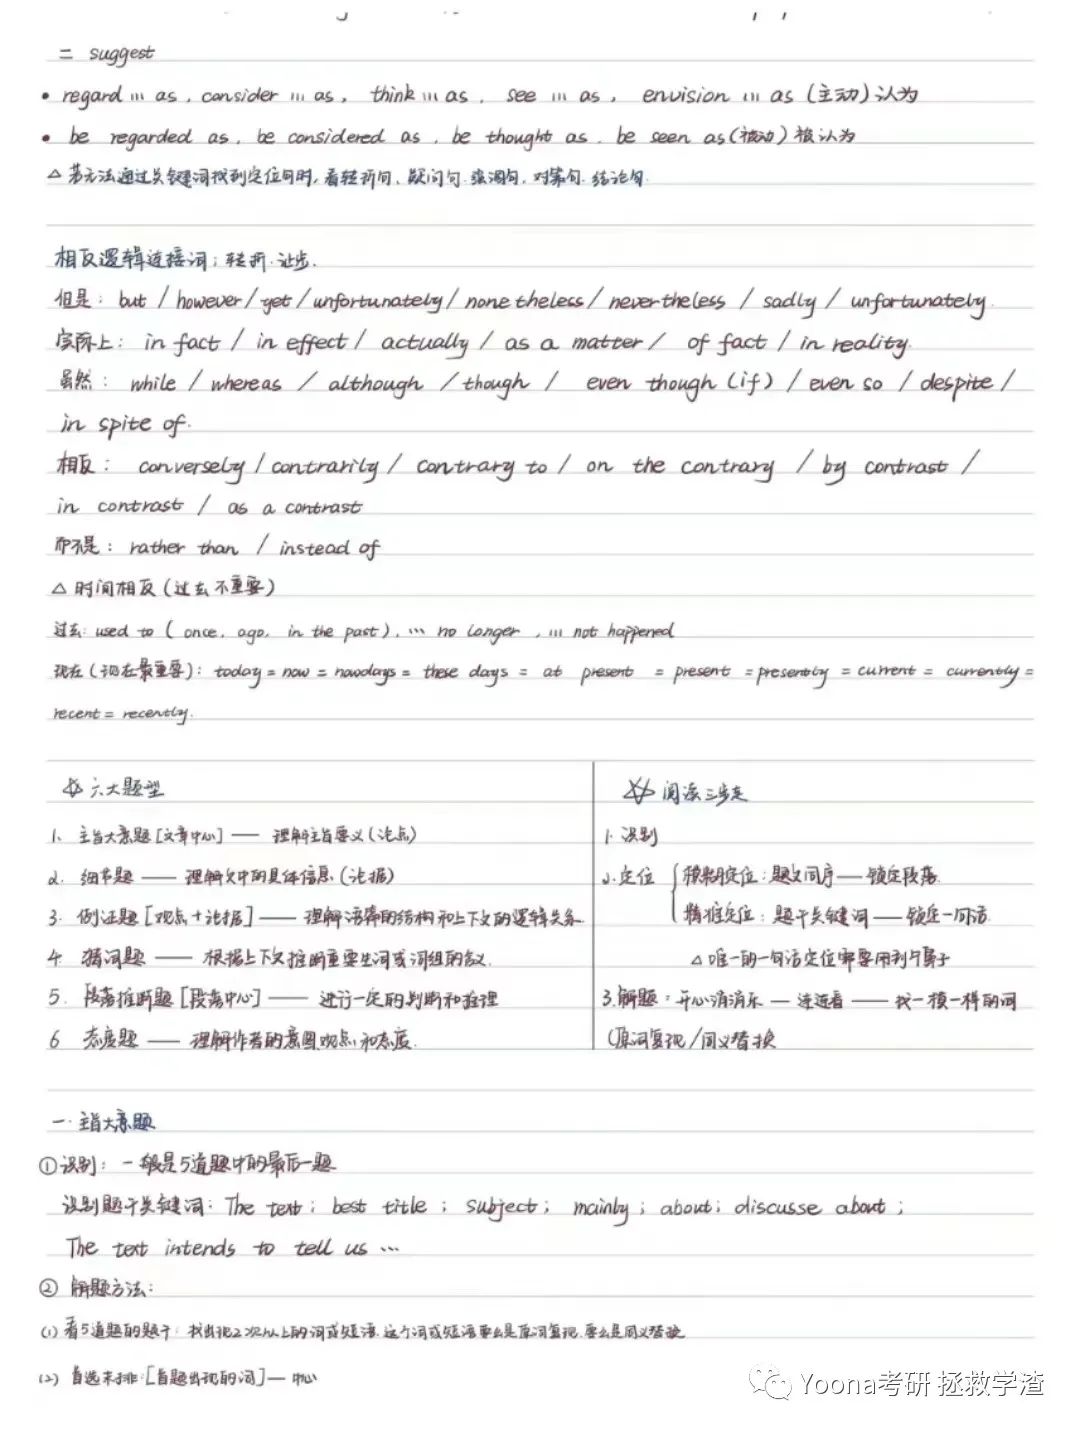 二 suggest
• regard ... as , consider ... as , think ... as , see ... as , envision ... as (主动)认为
• be regarded as , be considered as , be thought as , be seen as(被动)被认为
△ 若无法通过关键词找到定位句时, 看转折句、疑问句、强调句, 对策句、结论句.
相反逻辑连接词: 转折. 让步.
但是: but / however / yet / unfortunately / nonetheless / nevertheless / sadly / unfortunately.
实际上: in fact / in effect / actually / as a matter / of fact / in reality.
虽然: while / whereas / although / though / even though (if) / even so / despite /
in spite of.
相反: conversely / contrarily / contrary to / on the contrary / by contrast /
in contrast / as a contrast
而不是: rather than / instead of
△ 时间相反(过去不重要)
过去: used to ( once. ago. in the past ), ... no longer , ... not happened
现在(现在最重要): today = now = nowdays = these days = at present = present = presently = current = currently =
recent = recently.
☆ 六大题型
1. 主旨大意题 [文章中心] —— 理解主旨要义(论点)
2. 细节题 —— 理解文中的具体信息(论据)
3. 例证题 [观点+论据] —— 理解语篇的结构和上下文的逻辑关系
4. 猜词题 —— 根据上下文推断重要生词或词组的含义.
5. 段落推断题 [段落中心] —— 进行一定的判断和推理
6 态度题 —— 理解作者的意图观点和态度.
☆ 阅读三步走
1. 识别
2. 定位 模糊定位: 题文同序 —— 锁定段落.
精准定位: 题干关键词 —— 锁定一句话
△ 唯一的一句话定位需要用到个鼻子
3. 解题: 开心消消乐 — 连连看 —— 找一模一样的词
(原词复现/同义替换
一. 主旨大意题
① 识别: 一般是5道题中的最后一题
识别题干关键词: The text ; best title ; subject ; mainly ; about ; discusse about ;
The text intends to tell us ...
② 解题方法:
(1) 看5道题的题干: 找出现2次以上的词或短语. 这个词或短语要么是原词复现. 要么是同义替换
(2) 首选末排: [首题出现的词] — 中心
Yoona考研 拯救学渣